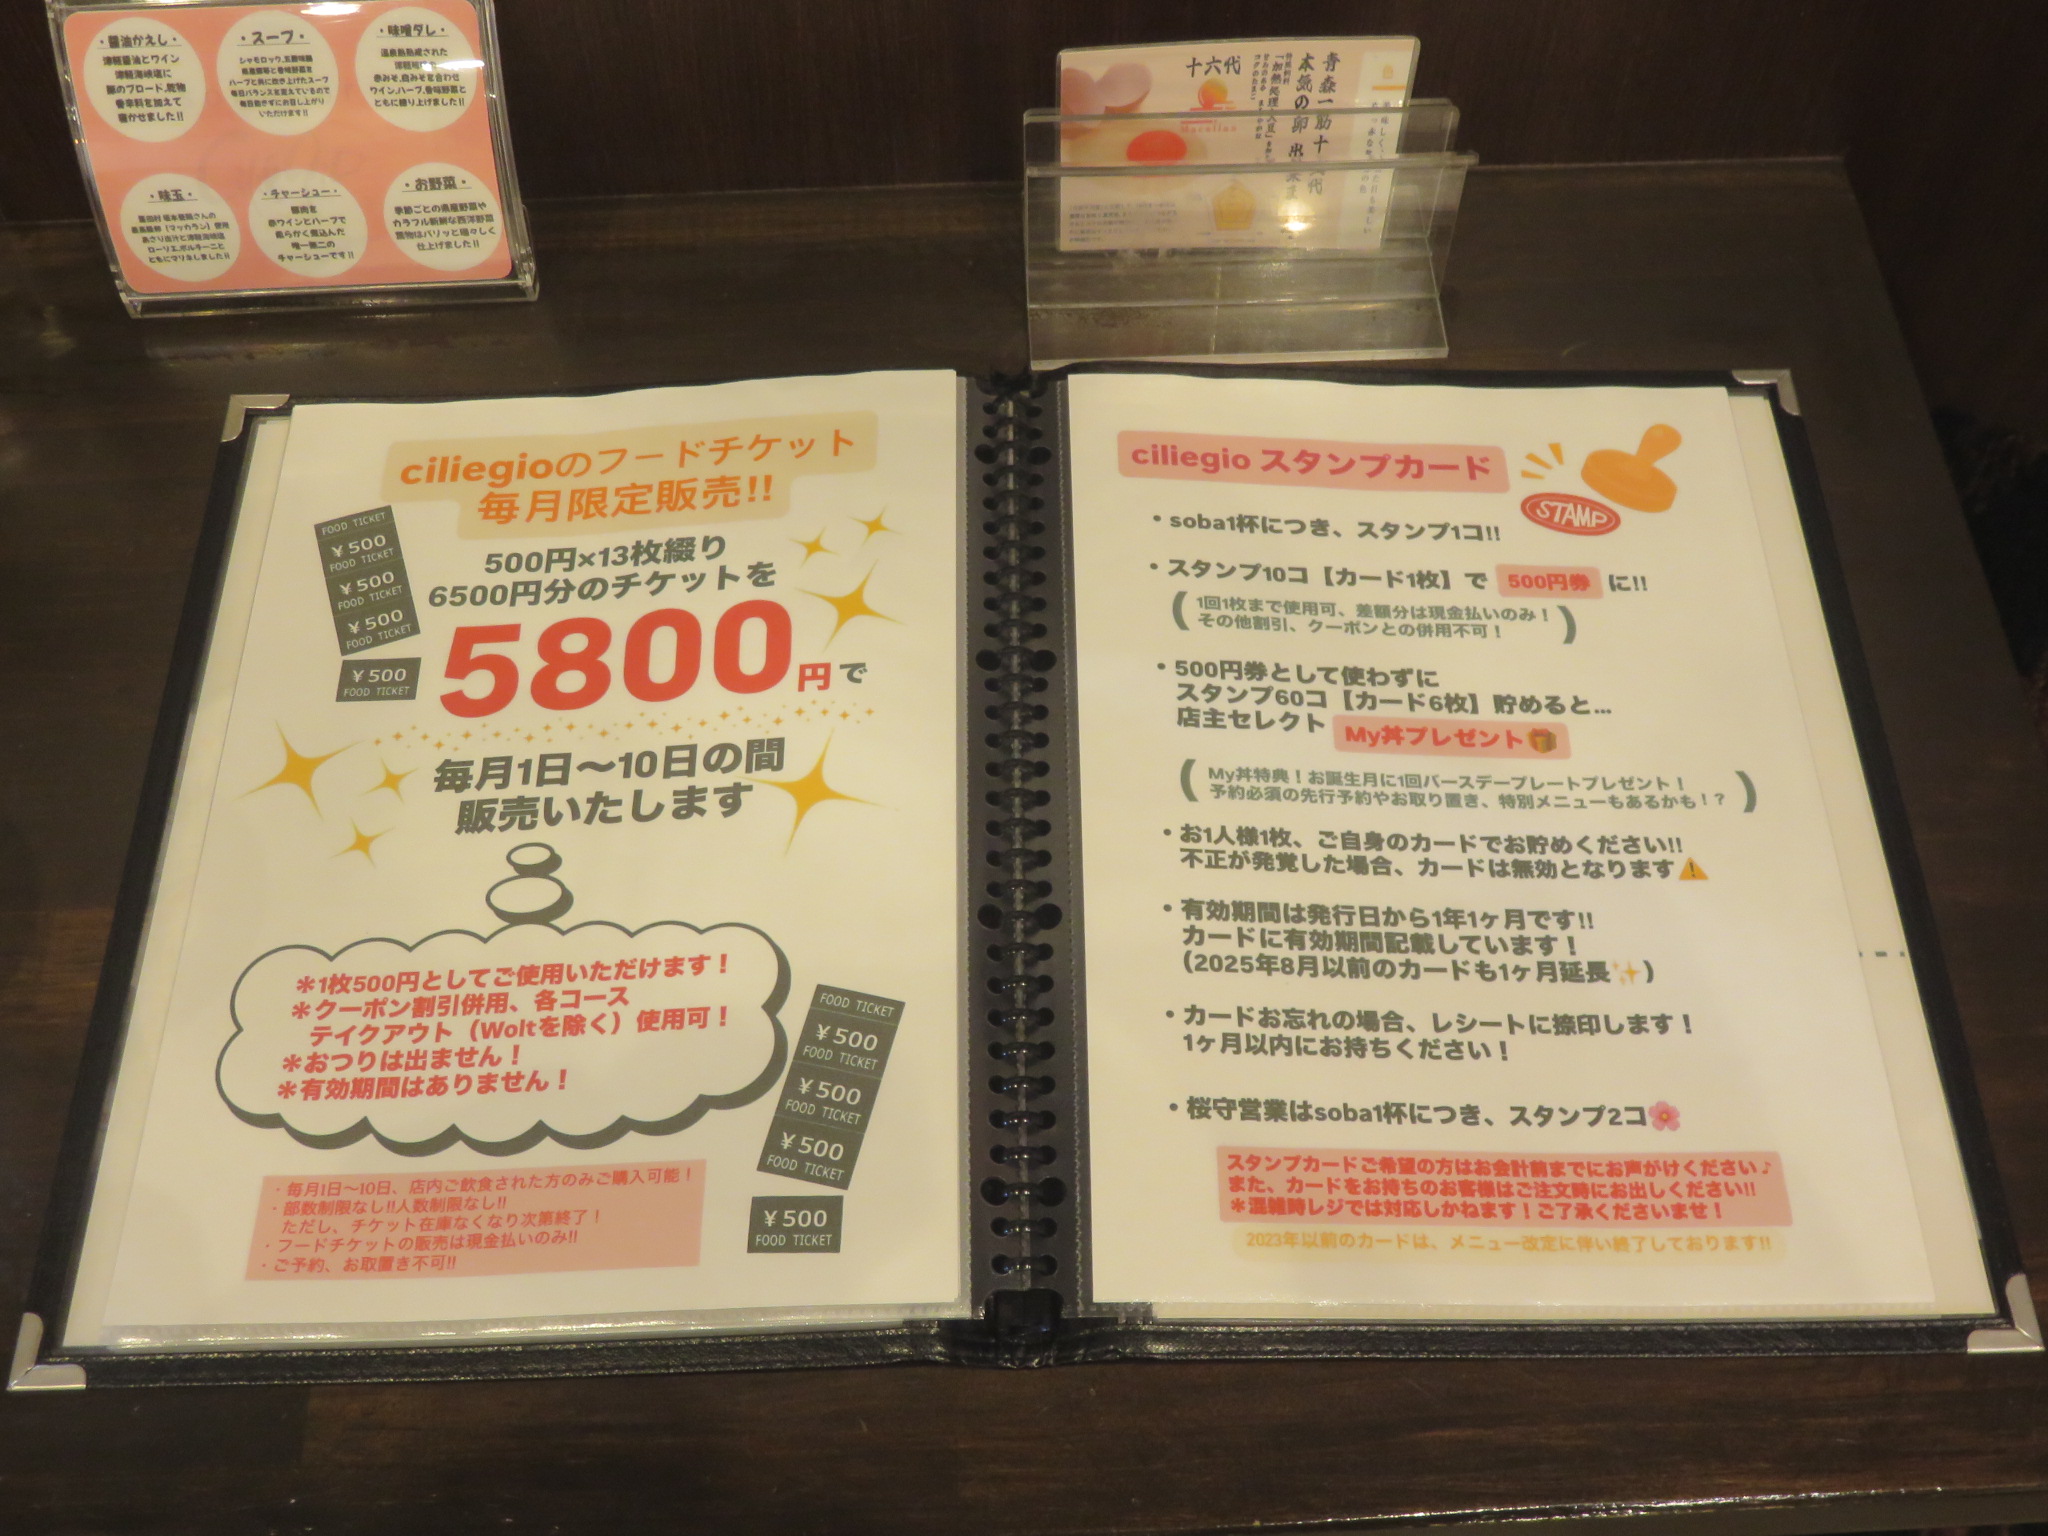 ・醤油かえし・
津軽醤油とワイン
津軽海峡塩に
香辛料を加えて
寝かせました!!
・スープ・
ハーブと共に炊き上げたスープ
毎日バランスを変えているので
毎日飽きずにお召し上がり
いただけます!!
・味噌ダレ・
温泉熱熟成された
赤みそ、白みそを合わせ
ワイン、ハーブ、香味野菜と
ともに練り上げました!!
・味玉・
ともにマリネしました!!
・チャーシュー・
豚肉を
赤ワインとハーブで
柔らかく煮込んだ
唯一無二の
チャーシューです!!
・お野菜・
季節ごとの県産野菜や
カラフル新鮮な西洋野菜
仕上げました!!
十六代
青森一筋十六代
本気の卵
ciliegioのフードチケット
毎月限定販売!!
FOOD TICKET
¥500
FOOD TICKET
¥500
FOOD TICKET
¥500
FOOD TICKET
¥500
FOOD TICKET
500円×13枚綴り
6500円分のチケットを
5800円で
毎月1日〜10日の間
販売いたします
＊1枚500円としてご使用いただけます！
＊クーポン割引併用、各コース
テイクアウト（Woltを除く）使用可！
＊おつりは出ません！
＊有効期間はありません！
FOOD TICKET
¥500
FOOD TICKET
¥500
FOOD TICKET
¥500
FOOD TICKET
¥500
FOOD TICKET
・毎月1日〜10日、店内ご飲食された方のみご購入可能！
・部数制限なし!!人数制限なし!!
ただし、チケット在庫なくなり次第終了！
・フードチケットの販売は現金払いのみ!!
・ご予約、お取置き不可!!
ciliegio スタンプカード
STAMP
・soba1杯につき、スタンプ1コ!!
・スタンプ10コ【カード1枚】で 500円券 に!!
（1回1枚まで使用可、差額分は現金払いのみ！
その他割引、クーポンとの併用不可！）
・500円券として使わずに
スタンプ60コ【カード6枚】貯めると...
店主セレクト My丼プレゼント🎁
（My丼特典！お誕生月に1回バースデープレートプレゼント！
予約必須の先行予約やお取り置き、特別メニューもあるかも！？）
・お1人様1枚、ご自身のカードでお貯めください!!
不正が発覚した場合、カードは無効となります⚠
・有効期間は発行日から1年1ヶ月です!!
カードに有効期間記載しています！
（2025年8月以前のカードも1ヶ月延長✨）
・カードお忘れの場合、レシートに捺印します！
1ヶ月以内にお持ちください！
・桜守営業はsoba1杯につき、スタンプ2コ🌸
スタンプカードご希望の方はお会計前までにお声がけください♪
また、カードをお持ちのお客様はご注文時にお出しください!!
＊混雑時レジでは対応しかねます！ご了承くださいませ！
2023年以前のカードは、メニュー改定に伴い終了しております!!